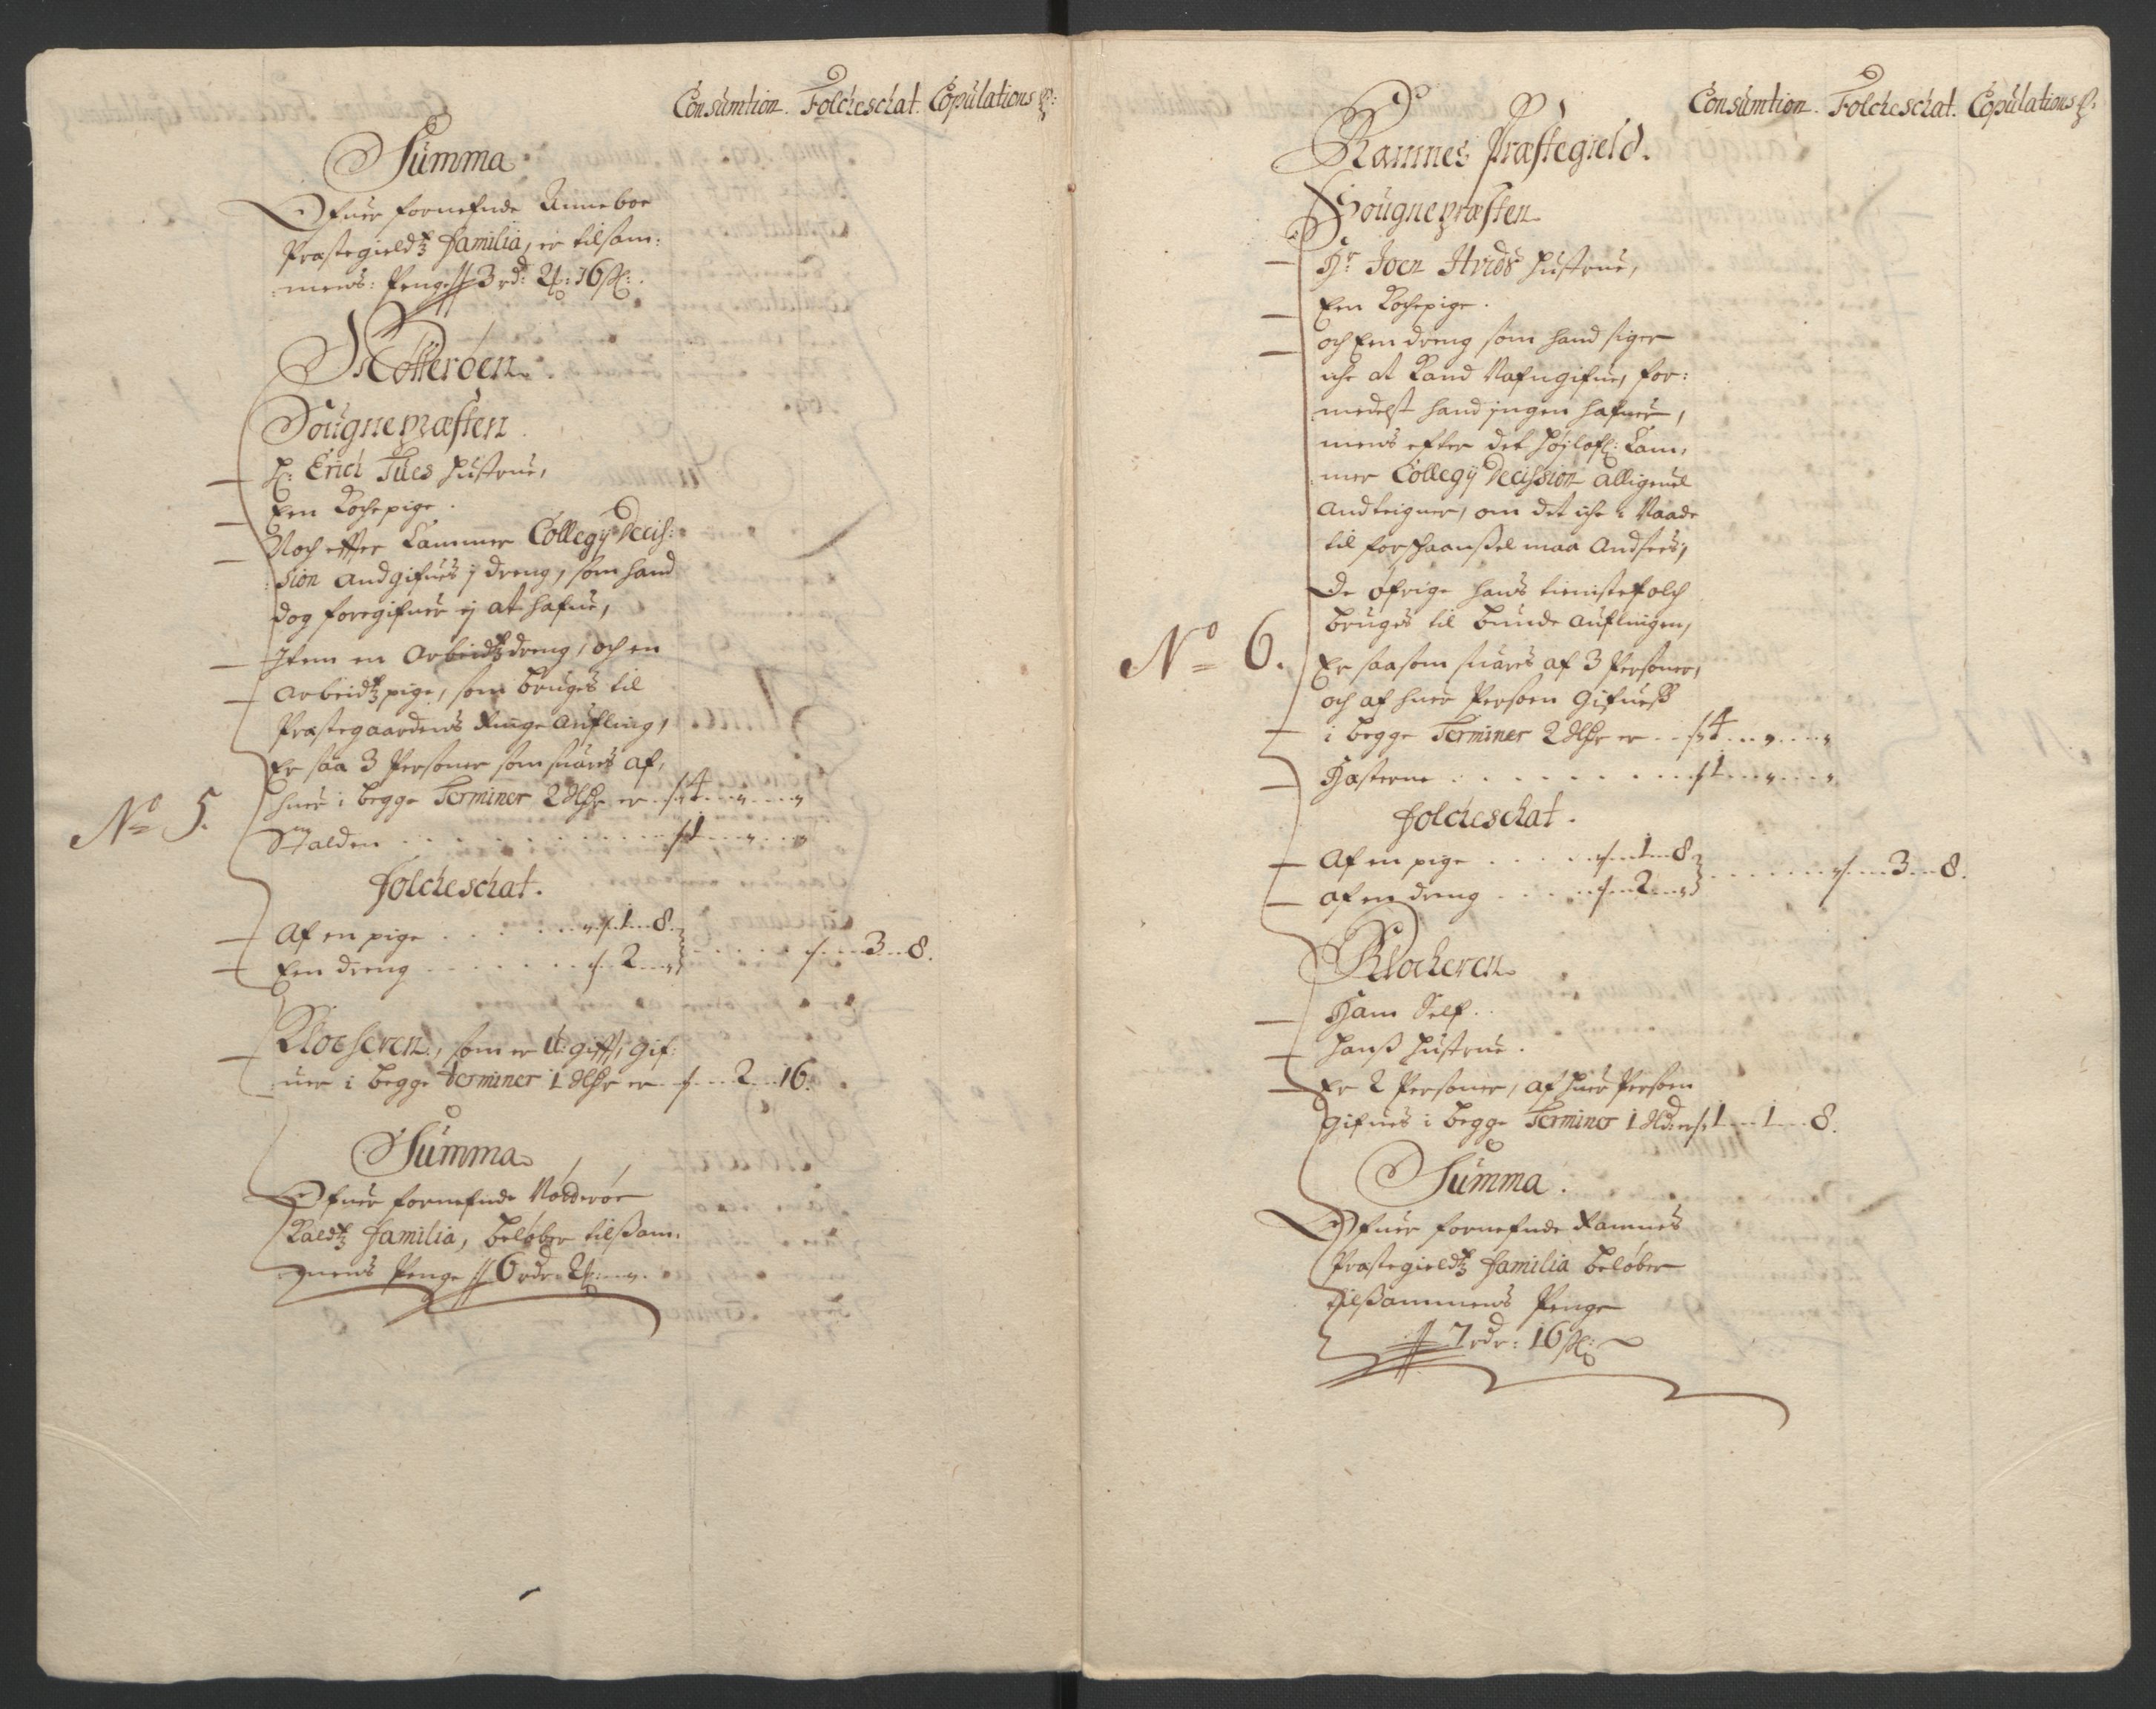 Consumtion. Folcheschat. Copulations p:
Summa
Ofuer fornefnde Runneboe
Præstegieldtz Familia, er tilsam:
mens: Penge // 3 rdr: 2 : 16 sk:.
Nötteröen.
Sougnepræsten
H: Erich Tües Hustrue,
Een Kochepige.
Noch effter Cammer Collegij Decis:
:sion Andgifues j dreng, som hand
dog foregifuer ej at hafue,
Item en Arbeidtzdreng, och en
Arbeidtzpige, som bruges til
Præstegaardens Ringe Aufling,
Er saa 3 Personer som suares af,
huer i begge Terminer 2 er 4
No 5.
Stalden 1
Folcheschat.
Af en pige 1 8.
Een dreng 2 3 8.
Klocheren, som er U:gifft, gif:
:uer i begge Terminer 1 er 2 16.
Summa
Ofuer fornefnde Nödderöe
Kaldtz Familia, beløber tilsam:
:mens Penge // 6 rdr 2
Consumtion. Folcheschat. Copulations p:
Ramnes Præstegield.
Sougnepræsten
Hr: Joen Hvids Hustrue,
Een Kochepige.
och Een dreng som hand siger
iche at kand Nafngifue, for:
:medelst hand jngen hafuer,
mens efter det Højlofl: Cam,
mer Collegij Decission alligeuel
Andteigner, om det iche i Naade
til forschaansel maa Andsees,
De øfrige hans tienistefolch
bruges til bunde Auflingen,
No 6.
Er saasom suares af 3 Personer,
och af huer Persoen Gifuess
i begge Terminer 2 er 4
Hæsterne 1
Folcheschat.
Af en pige 1 8
af en dreng 2 3 8.
Klocheren
Ham Self.
Hans Hustrue.
Er 2 Personer, af huer Persoen
gifues i begge Terminer 1 er 1 1 8.
Summa.
Ofuer fornefnde Ramnes
Præstegieldtz Familia beløber
tilsammens Penge
// 7 rdr: 16 sk: